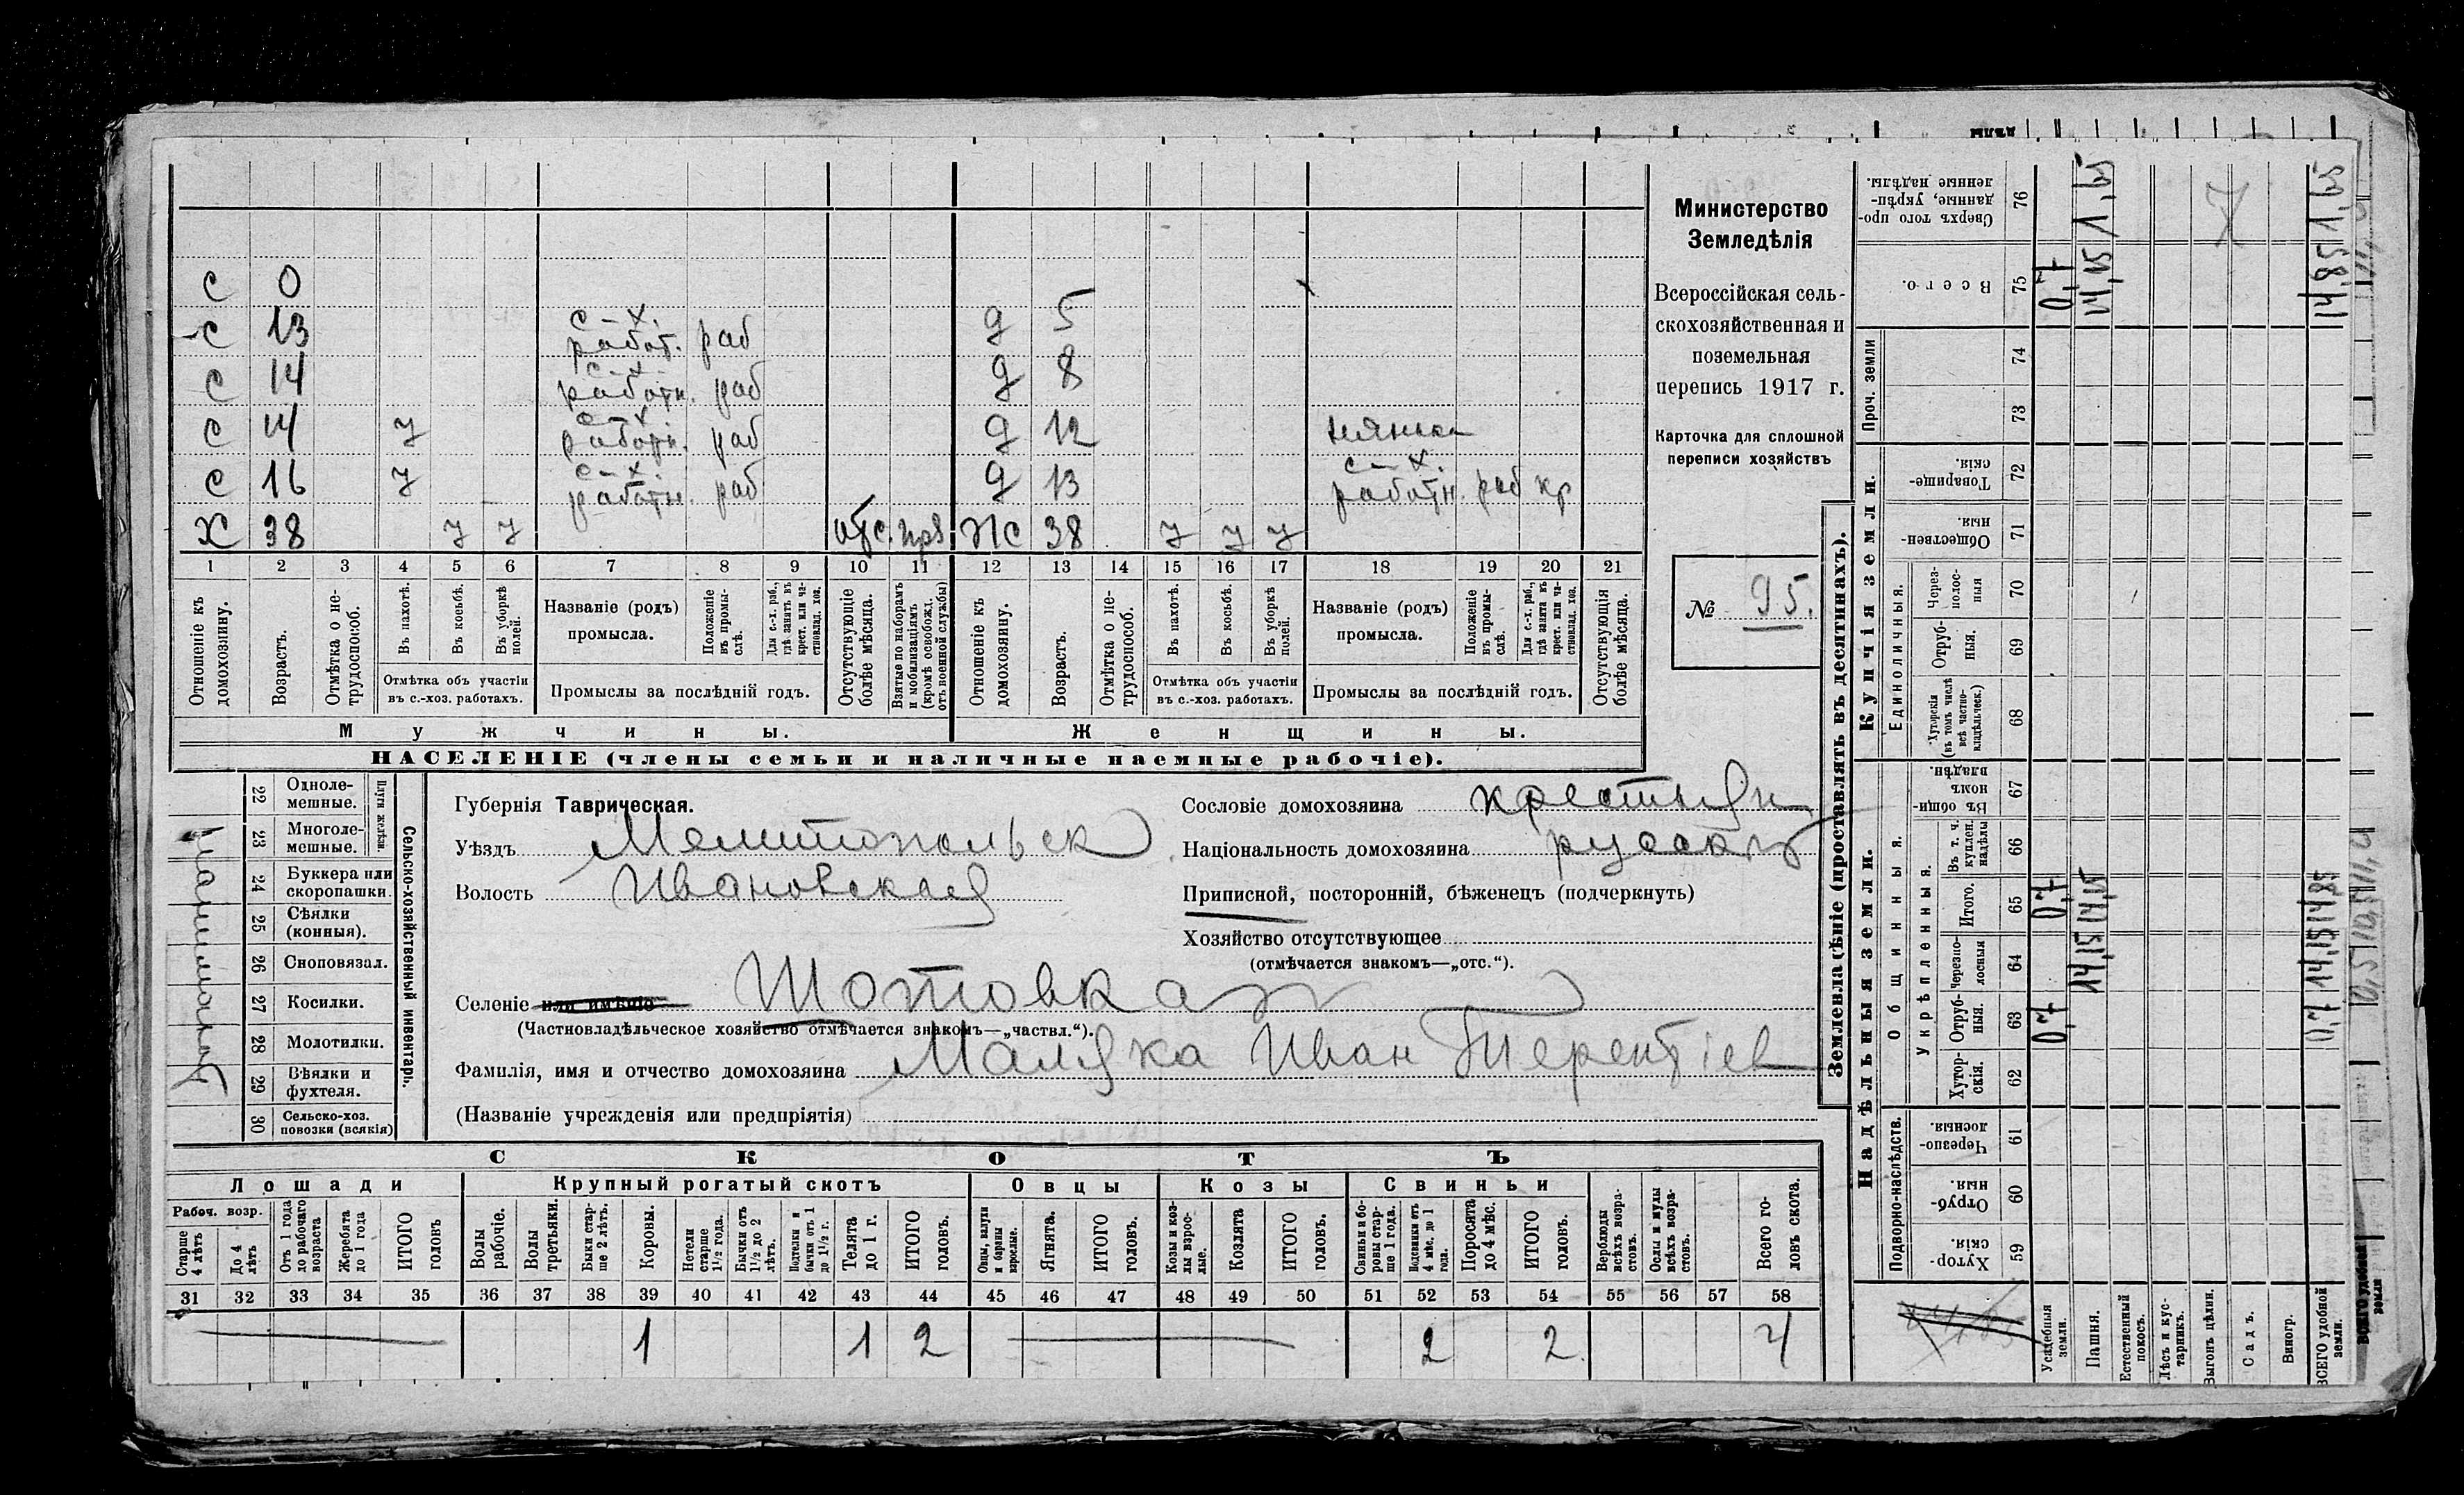 Министерство
Земледѣлія
Всероссійская сель-
скохозяйственная и
поземельная
перепись 1917 г.
Карточка для сплошной
переписи хозяйствъ
№ 95.
С 0
С 13 с-х. работ. раб д 5
С 14 с-х работн. раб д 8
С 14 У с-х работн. раб д 12 нянька
С 16 У с-х работн. раб д 13 с-х. работн. раб кр
Х 38 У У отс. Жс 38 У У У
1 2 3 4 5 6 7 8 9 10 11 12 13 14 15 16 17 18 19 20 21
Отношеніе къ домохозяину.
Возрастъ.
Отмѣтка о не-трудоспособ.
Въ пахотѣ.
Въ косьбѣ.
Въ уборкѣ полей.
Отмѣтка объ участіи
въ с.-хоз. работахъ.
Названіе (родъ)
промысла.
Положеніе въ промы-слѣ.
Для с.-х. раб., гдѣ занятъ въ крест. или ча-стновлад. хоз.
Промыслы за послѣдній годъ.
Отсутствующіе болѣе мѣсяца.
Взятые по наборамъ и мобилизаціямъ (кромѣ освобожд. отъ военной службы)
Отношеніе къ домохозяину.
Возрастъ.
Отмѣтка о не-трудоспособ.
Въ пахотѣ.
Въ косьбѣ.
Въ уборкѣ полей.
Отмѣтка объ участіи
въ с.-хоз. работахъ.
Названіе (родъ)
промысла.
Положеніе въ промы-слѣ.
Для с.-х. раб., гдѣ занята въ крест. или ча-стновлад. хоз.
Промыслы за послѣдній годъ.
Отсутствующія болѣе мѣсяца.
Мужчины. Женщины.
НАСЕЛЕНІЕ (члены семьи и наличные наемные рабочіе).
22 Одноле-мешные.
23 Многоле-мешные.
Плуги желѣзн.
24 Буккера или скоропашки.
25 Сѣялки (конныя).
26 Сноповязал.
27 Косилки.
28 Молотилки.
29 Вѣялки и фухтеля.
30 Сельско-хоз. повозки (всякія)
Сельско-хозяйственный инвентарь.
Губернія Таврическая.
Уѣздъ Мелитопольск
Волость Ивановская
Сословіе домохозяина крестьян
Національность домохозяина русск
Приписной, посторонній, бѣженецъ (подчеркнуть)
Хозяйство отсутствующее
(отмѣчается знакомъ—„отс.“).
Селеніе или имѣніе Шотовка
(Частновладѣльческое хозяйство отмѣчается знакомъ—„частвл.“).
Фамилія, имя и отчество домохозяина Маляка Иван Терентіев
(Названіе учрежденія или предпріятія)
СКОТЪ
Лошади Крупный рогатый скотъ Овцы Козы Свиньи
Рабоч. возр.
Старше 4 лѣтъ
До 4 лѣтъ
Отъ 1 года до рабочаго возраста
Жеребята до 1 года
ИТОГО головъ
Волы рабочіе.
Волы третьяки.
Быки стар-ше 2 лѣтъ.
Коровы.
Нетели старше 1½ года.
Бычки отъ 1½ до 2 лѣтъ.
Подтелки и бычки отъ 1 до 1½ г.
Телята до 1 г.
ИТОГО головъ.
Овцы, валухи и бараны взрослые.
Ягнята.
ИТОГО головъ.
Козы и коз-лы взрос-лые.
Козлята
ИТОГО головъ.
Свиньи и бо-ровы стар-ше 1 года.
Подсвинки отъ 4 мѣс. до 1 года.
Поросята до 4 мѣс.
ИТОГО головъ.
Верблюды всѣхъ возра-стовъ.
Ослы и мулы всѣхъ возра-стовъ.
Всего го-ловъ скота.
31 32 33 34 35 36 37 38 39 40 41 42 43 44 45 46 47 48 49 50 51 52 53 54 55 56 57 58
1 1 2 2 2 4
Землевладѣніе (проставлять въ десятинахъ).
Надѣльныя земли.
Купчія земли.
Подворно-наслѣдств.
Общинныя.
Укрѣпленныя.
Единоличныя.
Проч. земли
59 Хутор-скія.
60 Отруб-ныя.
61 Черезпо-лосныя.
62 Хутор-скія.
63 Отруб-ныя.
64 Черезпо-лосныя
65 Итого.
66 Въ т. ч. куплен. надѣлы
67 Въ общи-номъ владѣн.
68 Хуторскія (въ томъ числѣ всѣ частно-владѣльческ.)
69 Отруб-ныя.
70 Через-полос-ныя
71 Обществен-ныя.
72 Товарище-скія.
73
74
75 Всего.
76 Сверхъ того про-данные, укрѣп-ленные надѣлы.
Усадебныя земли. 0,7 0,7 0,7
Пашня. 14,15 14,15 14,15
Естественный покосъ.
Лѣсъ и кус-тарникъ.
Выгонъ цѣлин.
Садъ.
Виногр.
ВСЕГО удобной земли. 0,7 14,15 14,85 14,85